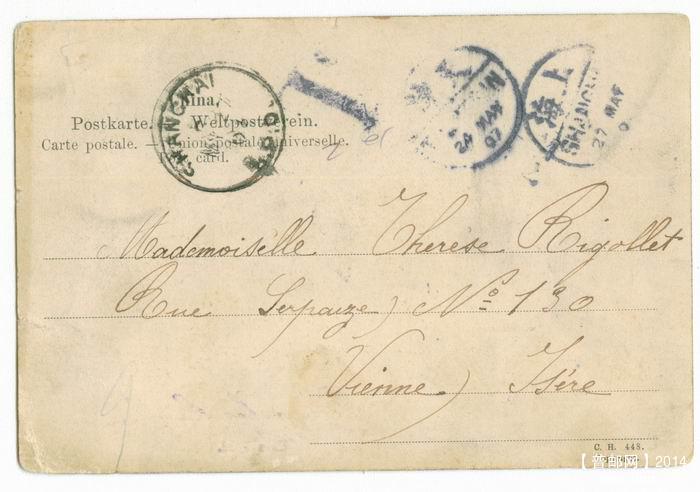 China.
Postkarte. — Weltpostverein.
Carte postale. — Union postale universelle.
card.
SHANGHAI
24 MAY
07
上海
27 MAY
Mademoiselle Therese Rigollet
Rue Serpaize) Nº 130
Vienne) Isère
C. H. 448.
【普邮网】2014